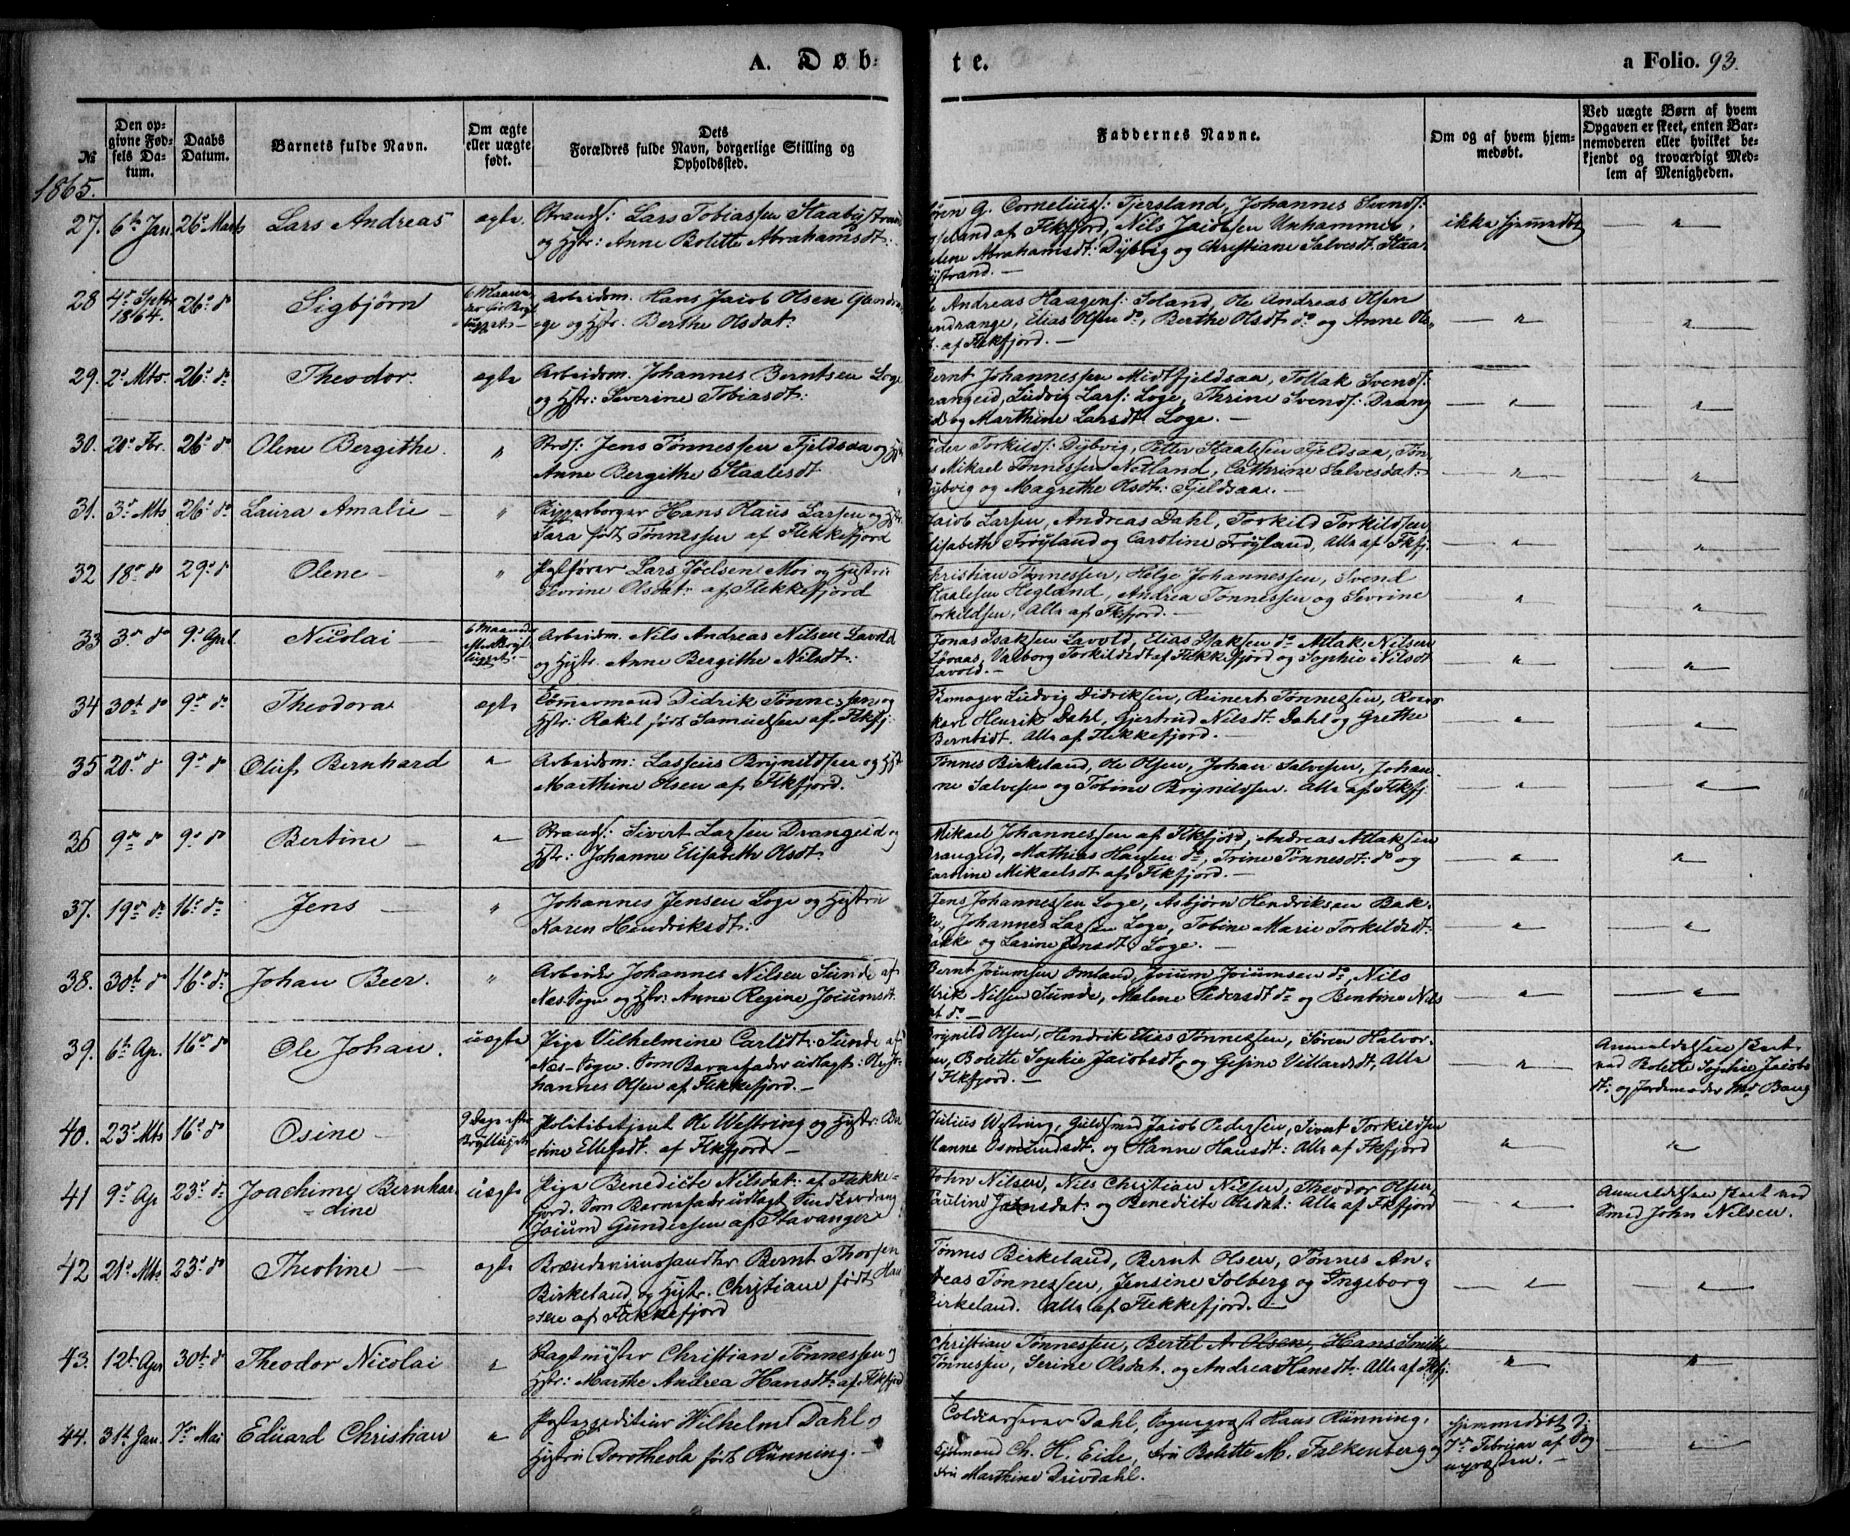 A. Døb-
te.
a Folio. 93.
№
Den op-
givne Fød-
sels Da-
tum.
Daabs
Datum.
Barnets fulde Navn.
Om ægte
eller uægte
født.
Dets
Forældres fulde Navn, borgerlige Stilling og
Opholdssted.
Faddernes Navne.
Om og af hvem hjem-
medøbt.
Ved uægte Børn af hvem
Opgaven er skeet, enten Bar-
nemoderen eller hvilket be-
kjendt og troværdigt Med-
lem af Menigheden.
1865.
27. 6te Jan. 26de Marts Lars Andreas ægte Strands: Lars Tobiassen Staabystrand
og Hstr: Anne Bolette Abrahamsdt:
G. Corneliuss: Tjersland, Johannes Svends:
af Fkfjord, Nils Jacobsen Unhammer,
Abrahamsdt: Dybvig og Christiane Salvesdt: Staa-
bystrand. —
ikke hjemmedøbt
28 4de Septbr 1864. 26de do Sigbjørn
6 Maaneder før Bryllupet
Arbeidsm. Hans Jacob Olsen Glendra-
nge og Hstr: Berthe Olsdat:
Andreas Haagens: Soland, Ole Andreas Olsen
Glendrange, Elias Olsen do, Berthe Olsdt do og Anne Ols-
dt. af Fkfjord. —
29. 2de Mts. 26de do Theodor. ægte Arbeidsm. Johannes Berntsen Loge
og Hstr: Severine Tobiasdt:
Bernt Johannessen Midtfjeldsaa, Tollak Svends:
Drangeid, Ludvig Lars: Loge, Thrine Svends: Drang
eid og Marthine Larsdt. Loge. —
30. 20de Fbr. 26de do Olene Bergithe. " Strds: Jens Tønnessen Fjeldsaa og Hstr
Anne Bergithe Staalesdt
Peder Torkilds: Dybvig, Peter Staalesen Fjeldsaa, Tøn
es Mikael Tønnessen Netland, Cathrine Salvesdat:
Dybvig og Magrethe Olsdt: Fjeldsaa. —
31. 3de Mts 26de do Laura Amalie — " Skipperborger Hans Claus Larsen og Hstr:
Sara født Tønnessen af Flekkefjord
Jacob Larsen, Andreas Dahl, Torkild Torkildsen,
Elisabeth Frøyland og Caroline Frøyland, Alle af Fkfj.
32 18de do 29de do Olene — " Postfører Lars Joelsen Moi og Hustru
Sevrine Olsdat: af Flekkefjord
Christian Tønnessen, Helge Johannessen, Svend
Staalesen Hegland, Andrea Tønnessen og Sevrine
Torkildsen, Alle af Fkfjord. —
33 3de do 9de Aprl. Nicolai —
6 Maaneder efter Bryllupet
Arbeidsm. Nils Andreas Nilsen Lavold
og Hstr: Anne Bergithe Nilsdt:
Jonas Isaksen Lavold, Elias Isaksen do Atlak Nilsen
Løvaas, Valborg Torkildsdt af Flekkefjord og Sophie Nilsdt
Lavold. —
34 30te do 9de do Theodora ægte Tømermand Didrik Tønnessen og
Hstr: Rakel født Samuelsen af Fkfj:
Ludvig Didriksen, Reinert Tønnessen,
Henrik Dahl, Gjertrud Nilsdt. Dahl og Grethe
Berntsdt. Alle af Flekkefjord. —
35 20de do 9de do Oluf Bernhard " Arbeidsm: Lasseus Brynildsen og Hstr
Marthine Olsen af Fkfjord.
Tønnes Birkeland, Ole Olsen, Johan Salvesen, Johan-
ne Salvesen og Tobine Brynildsen. Alle af Fkfj.
36 9de do 9de do Bertine — " Strands: Sivert Larsen Drangeid og
Hstr: Johanne Elisabeth Olsdt:
Mikael Johannessen af Fkfjord, Andreas Atlaksen
Drangeid, Mathias Hansen do, Trine Tønnesdt: do og
Caroline Mikaelsdt af Fkfjord. —
37. 19de do 16de do Jens — " Johannes Jensen Loge og Hustru
Karen Hendriksdt:
Jens Johannessen Loge, Asbjørn Hendriksen Bak-
ke, Johannes Larsen Loge, Tobine Marie Torkildsdt.
Bakke og Larine Jensdt: Loge. —
38. 30te do 16de do Johan Beer. " Arbeids: Johannes Nilsen Sunde af
Næs Sogn og Hstr: Anne Regine Joiumsdt.
Bernt Joiumsen Omland, Joium Joiumsen do, Nils
Erik Nilsen Sunde, Malene Pedersdt do og Bentine Nils
dt do —
39. 6te Ap. 16de do Ole Johan. uægte Pige Vilhelmine Carlsdt: Sunde af
Næs-Sogn. Som Barnefader udlagt:
hannes Olsen af Flekkefjord. —
Brynild Olsen, Hendrik Elias Tønnessen, Søren Halvor-
sen, Bolette Sophie Jacobsdt, og Gesine Villardsdt, Alle
af Fkfjord. —
Anmeldelsen skeet
ved Bolette Sophie Jacobs
dt: og Jordemoder Md Bang
40. 23de Mts 16de do Osine —
9 Dage efter Bryllupet
Politibetjent Ole Westring og Hustr:
tine Ellefsdt: af Fkfjord —
Julius Westring, Guldsmed Jacob Pedersen, Sivert Torkildsen
Hanne Osmundsdt. og Hanne Hansdt: Alle af Fkfjord
41 9de Ap 23de do Joachime Bernhar-
dine uægte Pige Benedicte Nilsdat: af Fække-
fjord. Som Barnefader udlagt
Joium Gundersen af Stavanger
John Nilsen, Nils Christian Nilsen, Theodor Olsen,
Pauline Jonsdat. og Benedicte Olsdat: Alle af Fkfjord
Anmeldelsen skeet ved
Smed John Nilsen.
42 21de Mts. 23de do Theoline — ægte Brændeviinshandler Bernt Thorsen
Birkeland og Hustr. Christiane født Han
sen af Flekkefjord
Tønnes Birkeland, Bernt Olsen, Tønnes An-
dreas Tønnessen, Jensine Solberg og Ingeborg
Birkeland. Alle af Flekkefjord. —
43. 12te Apr. 30te do Theodor Nicolai " Christian Tønnessen og
Hstr: Marthe Andrea Hansdt: af Fkfjord
Christian Tønnessen, Bertel A. Olsen, Hans Smith
Tønnessen, Serine Olsdat. og Andrea Hansdt. Alle af Fkfj.
44. 31te Jan. 7de Mai Eduard Christian " Postexpediteur Wilhelm Dahl og
Hustru Dorothea født Rünning. —
Dahl, Sognepræst Hans Rünning,
Kjøbmand Ch. H. Eide, Fru Bolette M. Falkenberg og
Fru Marthine Drivdahl.
hjemmedøbt d:
7de Februar af Sog
nepræsten. —